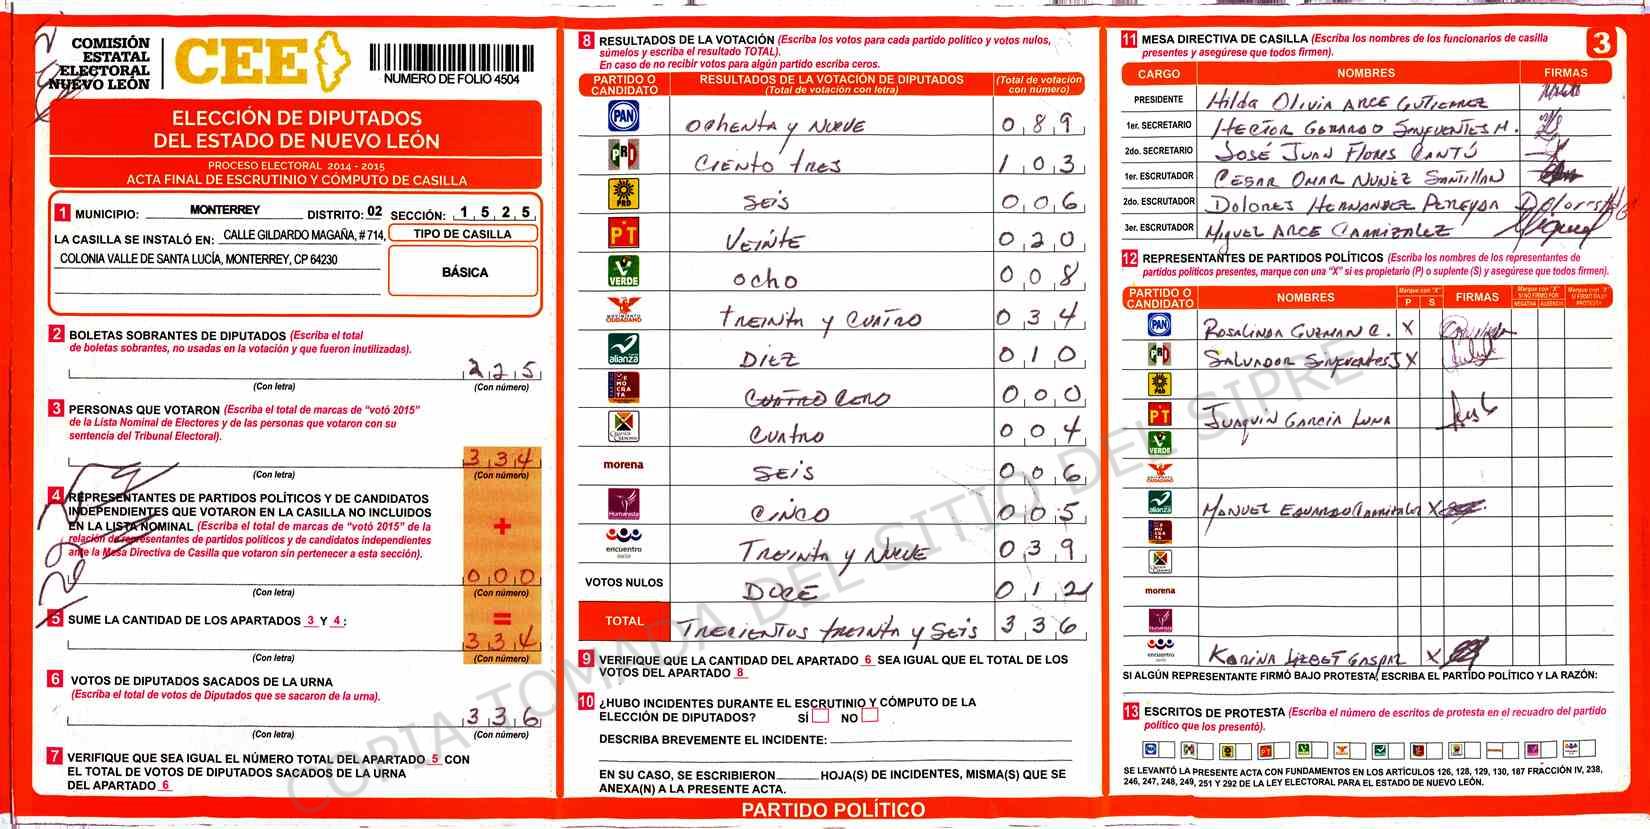 COMISIÓN
ESTATAL
ELECTORAL
NUEVO LEÓN
CEE
NUMERO DE FOLIO 4504
ELECCIÓN DE DIPUTADOS
DEL ESTADO DE NUEVO LEÓN
PROCESO ELECTORAL 2014 - 2015
ACTA FINAL DE ESCRUTINIO Y CÓMPUTO DE CASILLA
1 MUNICIPIO: MONTERREY DISTRITO: 02 SECCIÓN: 1 5 2 5
LA CASILLA SE INSTALÓ EN: CALLE GILDARDO MAGAÑA, # 714,
COLONIA VALLE DE SANTA LUCÍA, MONTERREY, CP 64230
TIPO DE CASILLA
BÁSICA
2 BOLETAS SOBRANTES DE DIPUTADOS (Escriba el total
de boletas sobrantes, no usadas en la votación y que fueron inutilizadas).
2 2 5
(Con letra) (Con número)
3 PERSONAS QUE VOTARON (Escriba el total de marcas de “votó 2015”
de la Lista Nominal de Electores y de las personas que votaron con su
sentencia del Tribunal Electoral).
3 3 4
(Con letra) (Con número)
4 REPRESENTANTES DE PARTIDOS POLÍTICOS Y DE CANDIDATOS
INDEPENDIENTES QUE VOTARON EN LA CASILLA NO INCLUIDOS
EN LA LISTA NOMINAL (Escriba el total de marcas de “votó 2015” de la
relación de representantes de partidos políticos y de candidatos independientes
ante la Mesa Directiva de Casilla que votaron sin pertenecer a esta sección).
+
0 0 0
(Con letra) (Con número)
=
5 SUME LA CANTIDAD DE LOS APARTADOS 3 Y 4:
3 3 4
(Con letra) (Con número)
6 VOTOS DE DIPUTADOS SACADOS DE LA URNA
(Escriba el total de votos de Diputados que se sacaron de la urna).
3 3 6
(Con letra) (Con número)
7 VERIFIQUE QUE SEA IGUAL EL NÚMERO TOTAL DEL APARTADO 5 CON
EL TOTAL DE VOTOS DE DIPUTADOS SACADOS DE LA URNA
DEL APARTADO 6
8 RESULTADOS DE LA VOTACIÓN (Escriba los votos para cada partido político y votos nulos,
súmelos y escriba el resultado TOTAL).
En caso de no recibir votos para algún partido escriba ceros.
PARTIDO O CANDIDATO RESULTADOS DE LA VOTACIÓN DE DIPUTADOS (Total de votación con letra) (Total de votación con número)
PAN OCHENTA Y NUEVE 0 8 9
PRI CIENTO TRES 1 0 3
PRD SEIS 0 0 6
PT VEINTE 0 2 0
VERDE OCHO 0 0 8
MOVIMIENTO CIUDADANO TREINTA Y CUATRO 0 3 4
alianza DIEZ 0 1 0
CUATRO CERO 0 0 0
CUATRO 0 0 4
morena SEIS 0 0 6
Humanista CINCO 0 0 5
encuentro social TREINTA Y NUEVE 0 3 9
VOTOS NULOS DOCE 0 1 2
TOTAL TRECIENTOS TREINTA Y SEIS 3 3 6
9 VERIFIQUE QUE LA CANTIDAD DEL APARTADO 6 SEA IGUAL QUE EL TOTAL DE LOS
VOTOS DEL APARTADO 8
10 ¿HUBO INCIDENTES DURANTE EL ESCRUTINIO Y CÓMPUTO DE LA
ELECCIÓN DE DIPUTADOS? SÍ NO
DESCRIBA BREVEMENTE EL INCIDENTE:
EN SU CASO, SE ESCRIBIERON HOJA(S) DE INCIDENTES, MISMA(S) QUE SE
ANEXA(N) A LA PRESENTE ACTA.
PARTIDO POLÍTICO
11 MESA DIRECTIVA DE CASILLA (Escriba los nombres de los funcionarios de casilla
presentes y asegúrese que todos firmen).
3
CARGO NOMBRES FIRMAS
PRESIDENTE Hilda Olivia ARCE GUTIERREZ
1er. SECRETARIO HECTOR GERARDO SINFUENTES M.
2do. SECRETARIO JOSÉ JUAN FLORES CANTÚ
1er. ESCRUTADOR CESAR OMAR NUNEZ SANTILLAN
2do. ESCRUTADOR DOLORES HERNANDEZ PEREYDA Dolores
3er. ESCRUTADOR MIGUEL ARCE CARRIZALEZ Miguel
12 REPRESENTANTES DE PARTIDOS POLÍTICOS (Escriba los nombres de los representantes de
partidos políticos presentes, marque con una “X” si es propietario (P) o suplente (S) y asegúrese que todos firmen).
PARTIDO O CANDIDATO NOMBRES Marque con "X" P S FIRMAS Marque con "X" SI NO FIRMÓ POR NEGATIVA AUSENCIA Marque con "X" SI FIRMÓ BAJO PROTESTA
PAN ROSALINDA GUZMAN C. X
PRI SALVADOR SINFUENTES J X
PRD
PT JUAQUIN GARCIA LUNA
VERDE
CIUDADANO
alianza MANUEL EDUARDO CARRIZALEZ X
morena
encuentro KARINA LIZBET GASPAR X
SI ALGÚN REPRESENTANTE FIRMÓ BAJO PROTESTA, ESCRIBA EL PARTIDO POLÍTICO Y LA RAZÓN:
13 ESCRITOS DE PROTESTA (Escriba el número de escritos de protesta en el recuadro del partido
político que los presentó).
SE LEVANTÓ LA PRESENTE ACTA CON FUNDAMENTOS EN LOS ARTÍCULOS 126, 128, 129, 130, 187 FRACCIÓN IV, 238,
246, 247, 248, 249, 251 Y 292 DE LA LEY ELECTORAL PARA EL ESTADO DE NUEVO LEÓN.
COPIA TOMADA DEL SITIO DEL SIPRE